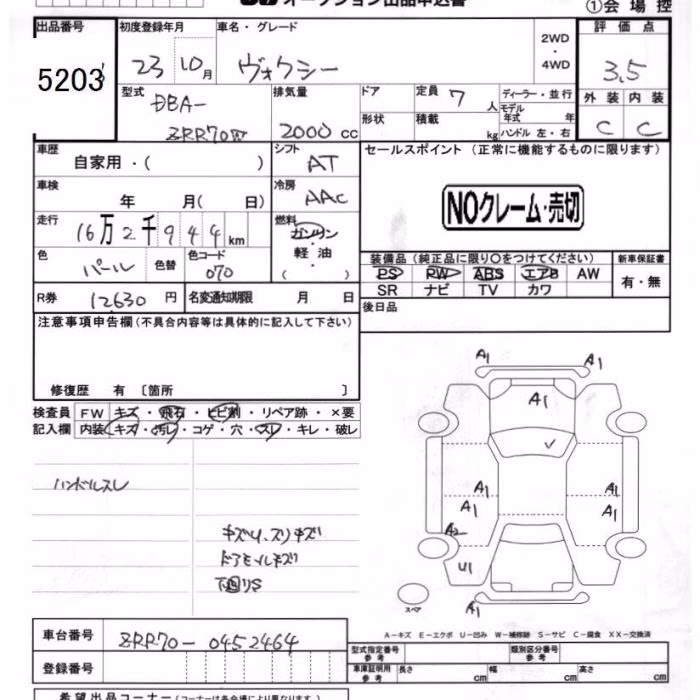 オークション出品申込書
①会場控
出品番号 5203
初度登録年月 23 10月
車名・グレード ヴォクシー
2WD・4WD
評価点 3.5
外装 C 内装 C
型式 DBA-ZRR70W
排気量 2000 cc
ドア 形状
定員 7人
積載 kg
ディーラー・並行
モデル年式 年
ハンドル 左・右
車歴 自家用・( )
シフト AT
セールスポイント (正常に機能するものに限ります)
NOクレーム・売切
車検 年 月( 日)
冷房 AAC
走行 16万2千944km
燃料 ガソリン・軽油・( )
色 パール 色替
色コード 070
装備品 (純正品に限り○をつけてください) 新車保証書
PS PW ABS エアB AW 有・無
SR ナビ TV カワ
R券 12,630 円 名変通知期限 月 日
後日品
注意事項申告欄 (不具合内容等は具体的に記入して下さい)
修復歴 有 〔箇所 〕
検査員記入欄
FW キズ・飛石・ヒビ割・リペア跡・×要
内装 キズ・汚レ・コゲ・穴・スレ・キレ・破レ
ハンドルスレ
キズU、スリキズ
ドアモールキズ
下廻りS
A1 A1
A1
✓
A1 A1
A1 A1
A2
U1
A1
スペア
A-キズ E-エクボ U-凹み W-補修跡 S-サビ C-腐食 XX-交換済
車台番号 ZRR70-0452464
登録番号
型式指定番号 参考 類別区分番号 参考
車庫証明用 参考 長さ cm 幅 cm 高さ cm
希望出品コーナー (コーナーは会場により異なります)